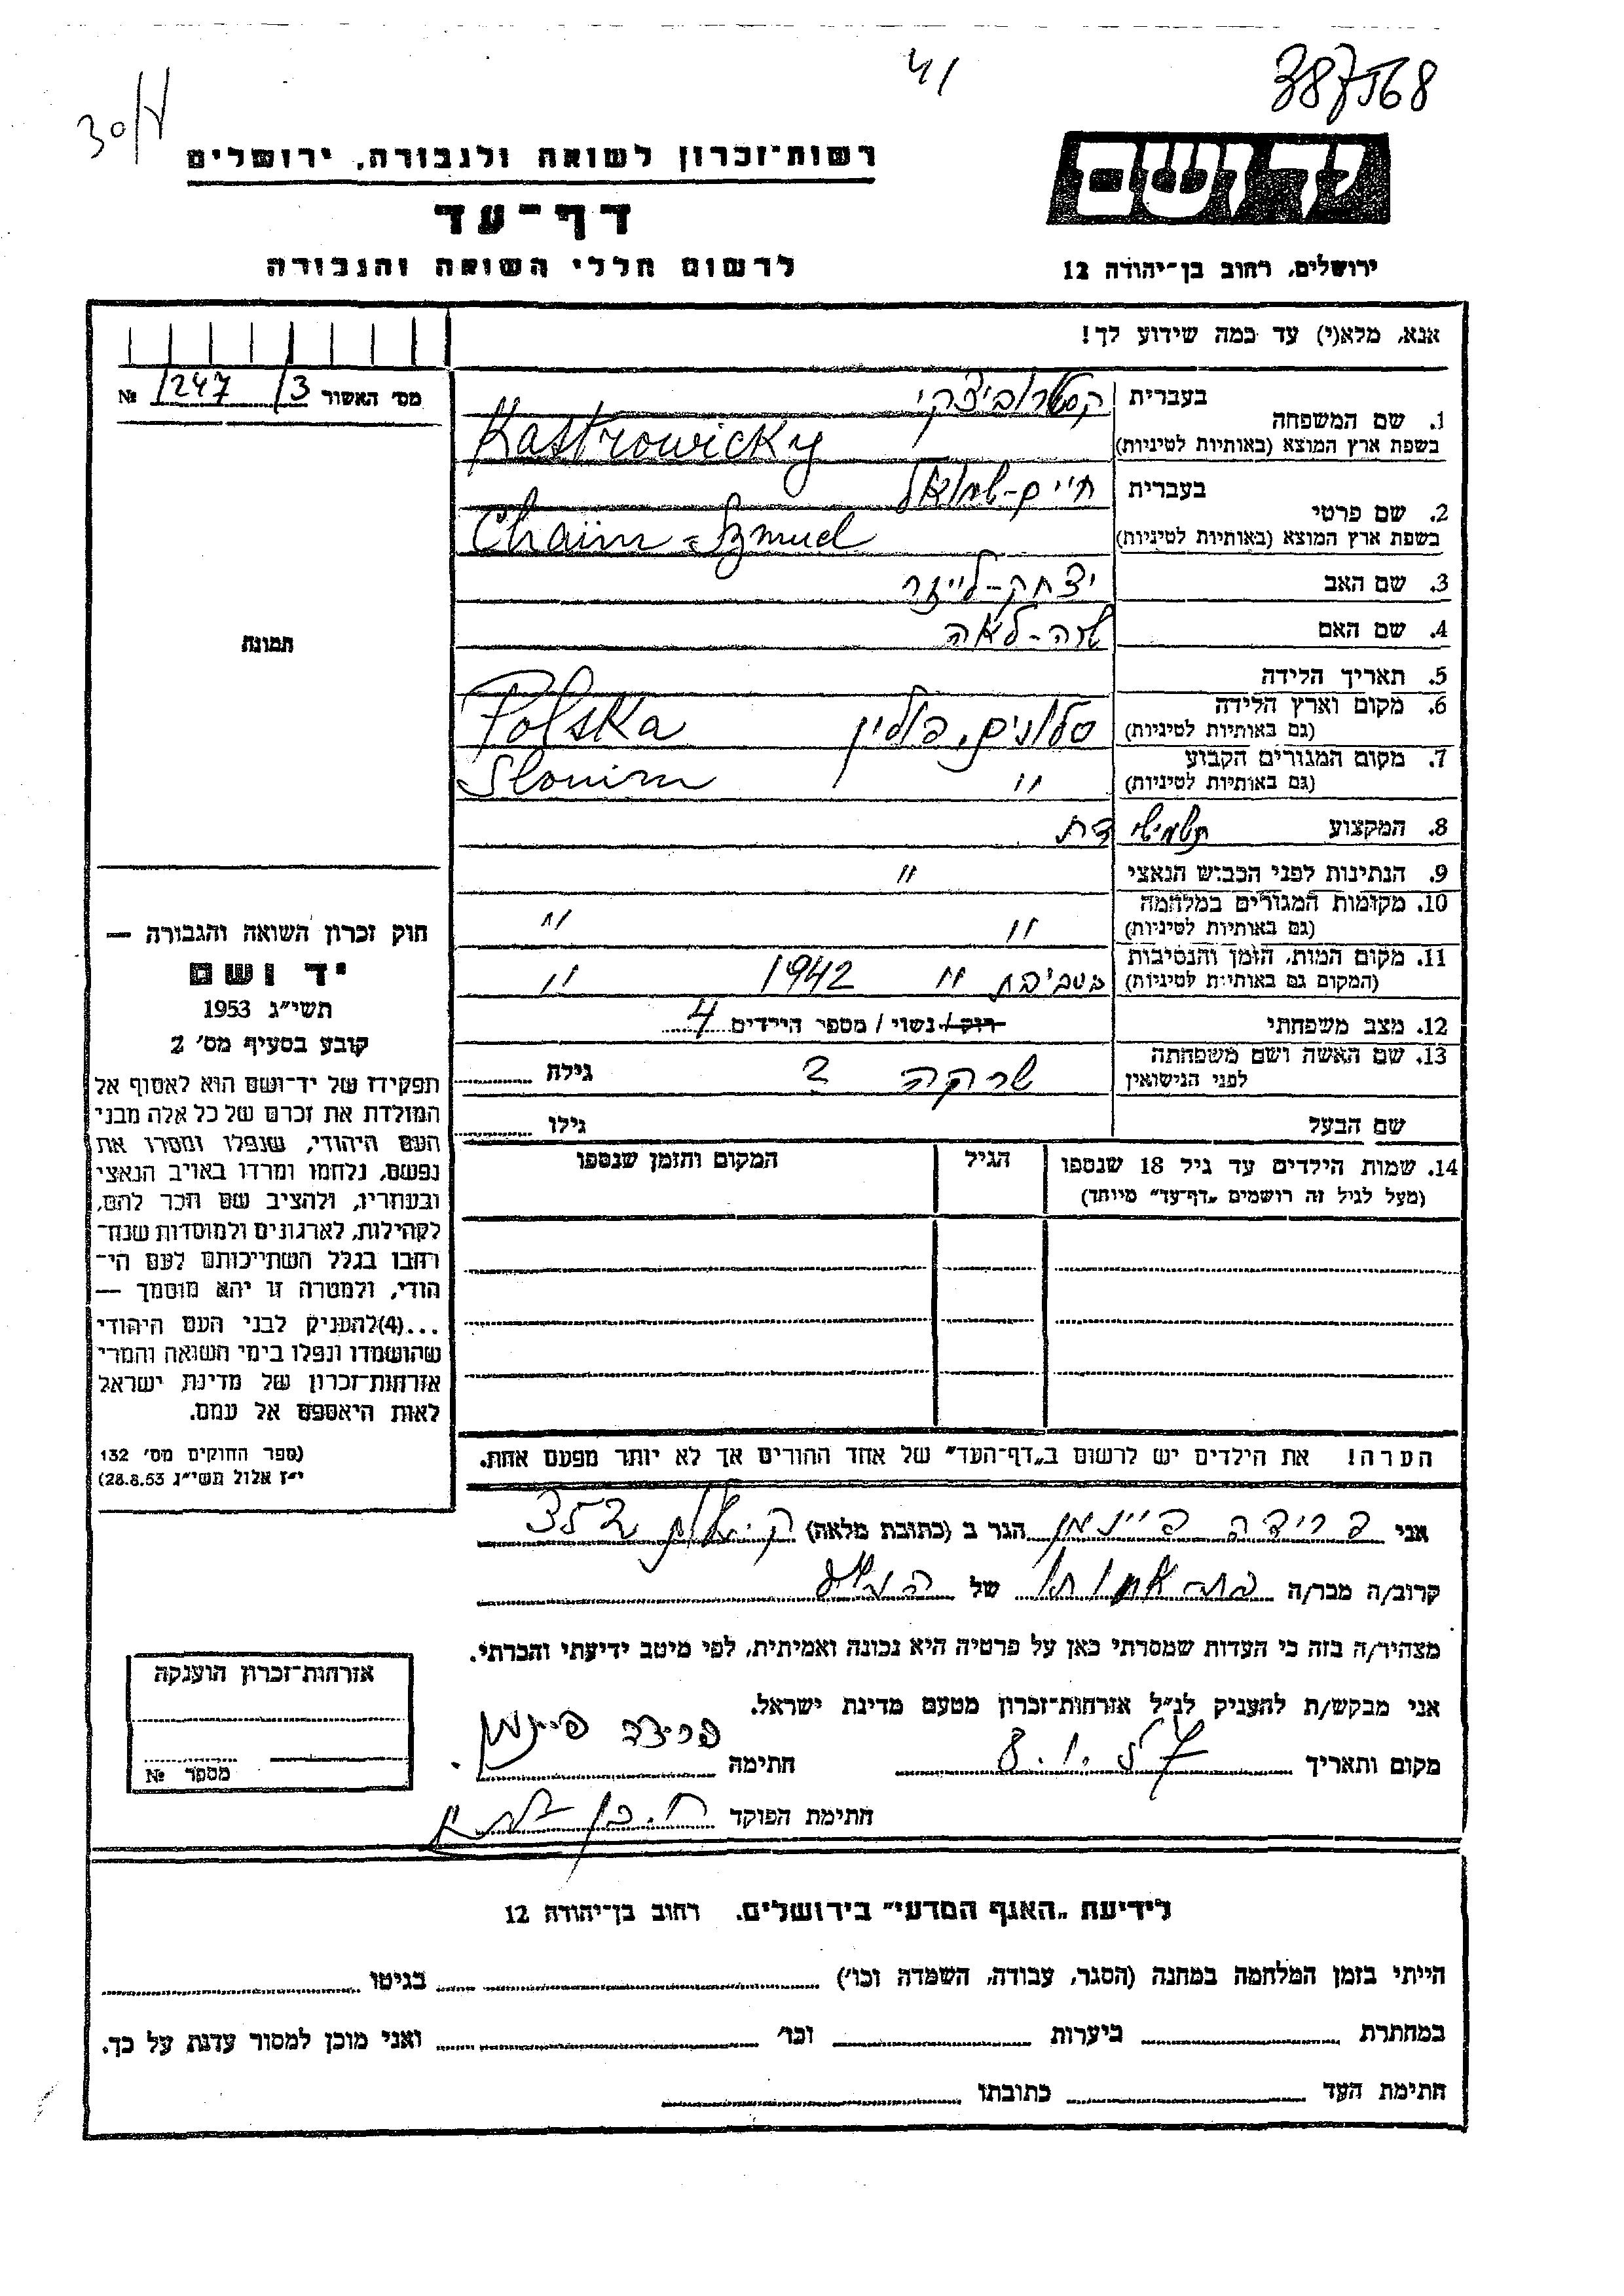 387568
41
30/V
יד ושם
רשות־זכרון לשואה ולגבורה, ירושלים
דף־עד
לרשום חללי השואה והגבורה
ירושלים, רחוב בן־יהודה 12
אנא, מלא(י) עד כמה שידוע לך!
מס׳ האשור 13/247 №
1. שם המשפחה בעברית קסטרוביצקי
בשפת ארץ המוצא (באותיות לטיניות) Kastrowicky
2. שם פרטי בעברית חיים-שמואל
בשפת ארץ המוצא (באותיות לטיניות) Chaim-Szmuel
3. שם האב יצחק-לייזר
4. שם האם שרה-לאה
5. תאריך הלידה
6. מקום וארץ הלידה סלונים, פולין Polska
(גם באותיות לטיניות)
7. מקום המגורים הקבוע " Slonim
(גם באותיות לטיניות)
8. המקצוע תשמישי דת
9. הנתינות לפני הכבוש הנאצי "
10. מקומות המגורים במלחמה " "
(גם באותיות לטיניות)
11. מקום המות, הזמן והנסיבות בסביבת " 1942 "
(המקום גם באותיות לטיניות)
12. מצב משפחתי רוק / נשוי / מספר הילדים 4
13. שם האשה ושם משפחתה לפני הנישואין שרקה ? גילה
שם הבעל גילו
14. שמות הילדים עד גיל 18 שנספו הגיל המקום והזמן שנספו
(מעל לגיל זה רושמים „דף־עד” מיוחד)
הערה! את הילדים יש לרשום ב„דף־העד” של אחד ההורים אך לא יותר מפעם אחת.
תמונה
חוק זכרון השואה והגבורה —
יד ושם
תשי״ג 1953
קובע בסעיף מס׳ 2
תפקידו של יד־ושם הוא לאסוף אל
המולדת את זכרם של כל אלה מבני
העם היהודי, שנפלו ומסרו את
נפשם, נלחמו ומרדו באויב הנאצי
ובעוזריו, ולהציב שם וזכר להם,
לקהילות, לארגונים ולמוסדות שנח־
רבו בגלל השתייכותם לעם הי־
הודי, ולמטרה זו יהא מוסמך —
...(4)להעניק לבני העם היהודי
שהושמדו ונפלו בימי השואה והמרי
אזרחות־זכרון של מדינת ישראל
לאות היאספם אל עמם.
(ספר החוקים מס׳ 132
י״ז אלול תשי״ג 28.8.53)
אני פרידה פיינמן הגר ב (כתובת מלאה)
קרוב/ה מכר/ה של
מצהיר/ה בזה כי העדות שמסרתי כאן על פרטיה היא נכונה ואמיתית, לפי מיטב ידיעתי והכרתי.
אני מבקש/ת להעניק לנ״ל אזרחות־זכרון מטעם מדינת ישראל.
מקום ותאריך 8.1.57 חתימה פרידה פיינמן
חתימת הפוקד
אזרחות־זכרון הוענקה
מספר №
לידיעת „האגף המדעי” בירושלים. רחוב בן־יהודה 12
הייתי בזמן המלחמה במחנה (הסגר, עבודה, השמדה וכו׳) בגיטו
במחתרת ביערות וכו׳ ואני מוכן למסור עדות על כך.
חתימת העד כתובתו